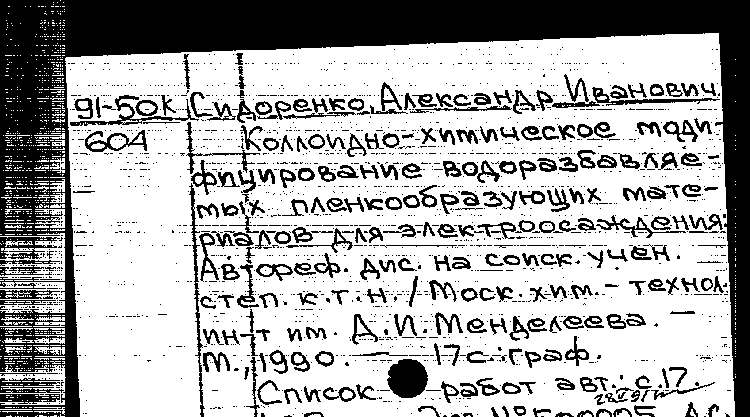 91-50К Сидоренко, Александр Иванович
604 Коллоидно-химическое моди-
фицирование водоразбавляе-
мых пленкообразующих мате-
риалов для электроосаждения:
Автореф. дис. на соиск. учен.
степ. к.т.н. / Моск. хим.-технол.
ин-т им. Д.И.Менделеева. —
М., 1990. — 17с.:граф.
Список работ авт.: с.17.